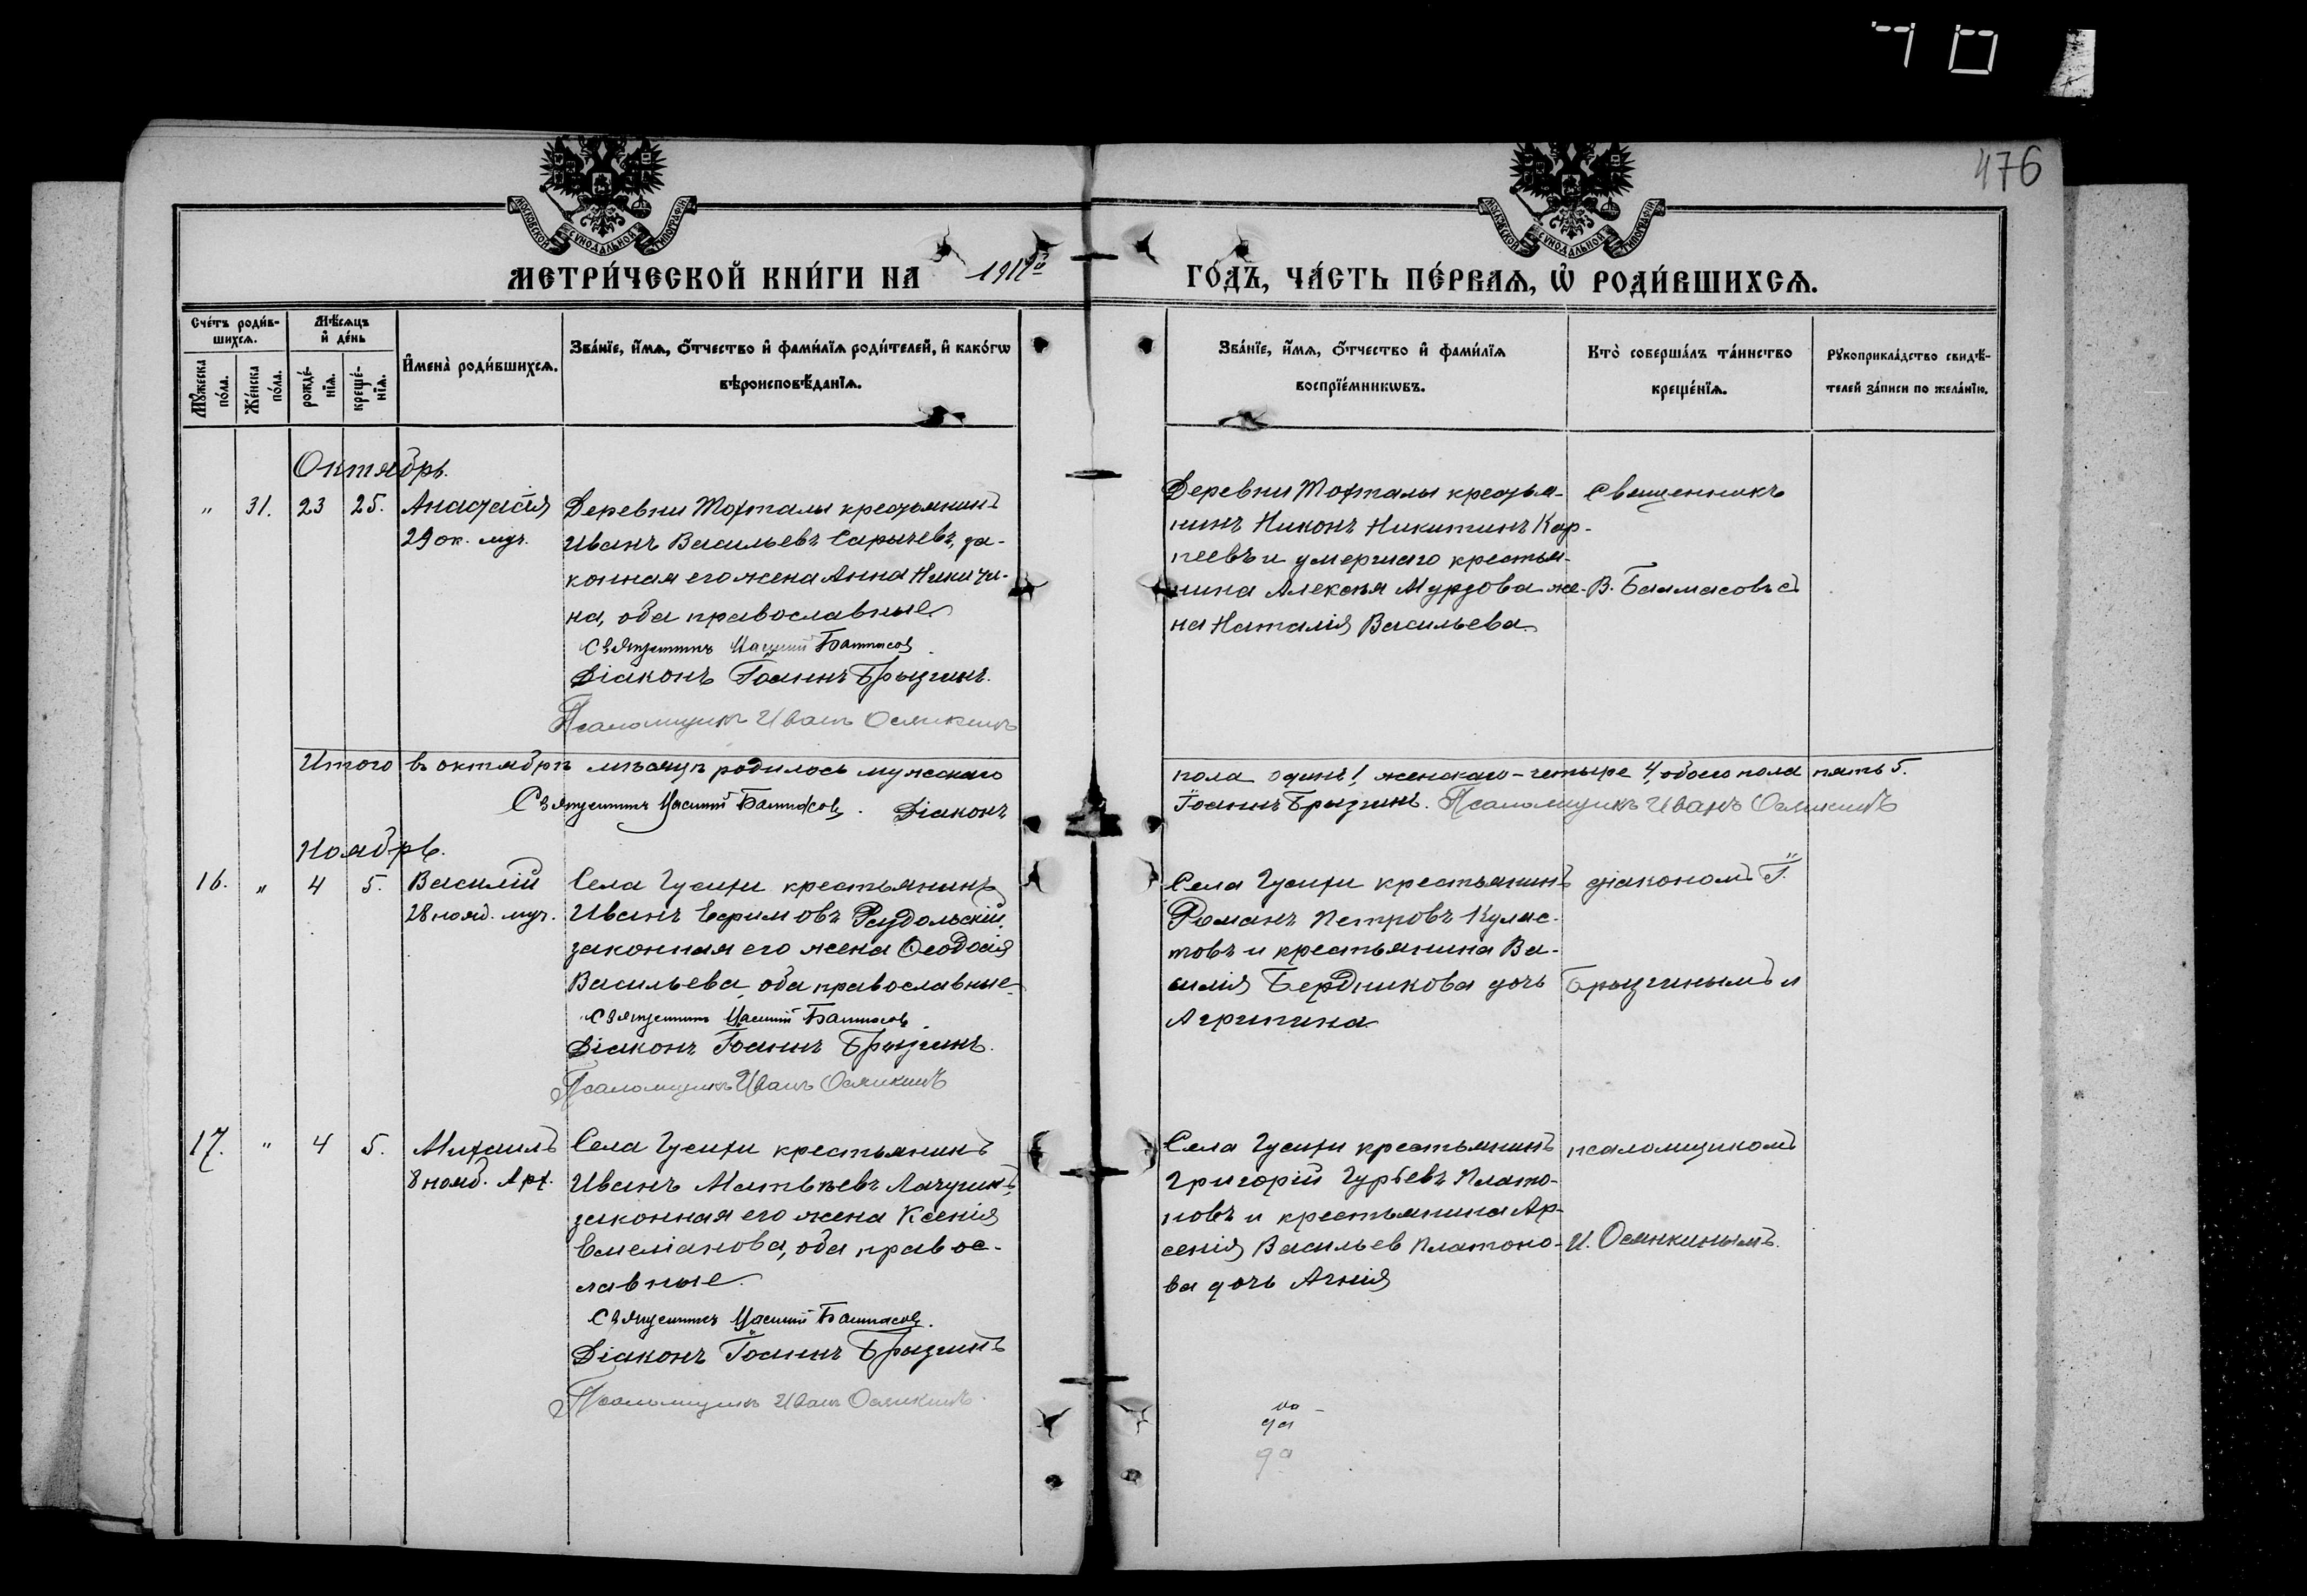 476
МОСКОВСКОЙ СУНОДАЛЬНОЙ ТИПОГРАФІИ
МОСКОВСКОЙ СУНОДАЛЬНОЙ ТИПОГРАФІИ
МЕТРИ́ЧЕСКОЙ КНИ́ГИ НА
ГО́ДЪ, ЧА́СТЬ ПЕ́РВАѦ, Ѡ҆ РОДИ́ВШИХСѦ.
Сче́тъ роди́в-
шихсѧ.
Мѣ́сѧцъ
и҆ де́нь
Мꙋ́жеска
по́ла.
Же́нска
по́ла.
рожде́-
нїѧ.
креще́-
нїѧ.
И҆мена̀ роди́вшихсѧ.
Зва́нїе, и҆́мѧ, ѻ҆́тчество и҆ фами́лїѧ роди́телей, и҆ како́гѡ
вѣроисповѣ́данїѧ.
Зва́нїе, и҆́мѧ, ѻ҆́тчество и҆ фами́лїѧ
воспрїе́мникѡвъ.
Кто̀ соверша́лъ та́инство
креще́нїѧ.
Рꙋкоприкла́дство свидѣ́-
телей за́писи по жела́нїю.
Октябрь.
" 31. 23 25. Анастасія
29 ок. муч.
Деревни Тохталы крестьянинъ
Иванъ Васильевъ Сарычевъ, за-
конная его жена Анна Никити-
на, оба православные
Священникъ Василий Балмасов.
Діаконъ Іоаннъ Брызгинъ.
Псаломщикъ Иванъ Осянкинъ
Деревни Тохталы крестья-
нинъ Никонъ Никитинъ Кар-
пеевъ и умершаго крестья-
нина Алексѣя Мурзова же-
на Наталія Васильева
Священникъ
В. Балмасовъ съ
Итого въ октябрѣ мѣсяцѣ родилось мужскаго
пола одинъ 1, женскаго - четыре 4, обоего пола пять 5.
Священникъ Василий Балмасовъ. Діаконъ
Іоаннъ Брызгинъ. Псаломщикъ Иванъ Осянкинъ
Ноябрь.
16. " 4 5. Василій
28 нояб. муч.
Села Гусихи крестьянинъ
Иванъ Ефимовъ
законная его жена Ѳеодосія
Васильева, оба православные
Священникъ Василий Балмасовъ.
Діаконъ Іоаннъ Брызгинъ.
Псаломщикъ Иванъ Осянкинъ
Села Гусихи крестьянинъ
Романъ Петровъ Кулис-
товъ и крестьянина Ва-
силія Бердникова дочь
Агрипина
діакономъ І.
Брызгинымъ и
17. " 4 5. Михаилъ
8 нояб. Арх.
Села Гусихи крестьянинъ
Иванъ Матвѣевъ Лачугинъ,
законная его жена Ксенія
Емеліанова, оба правос-
лавные
Священникъ Василий Балмасовъ.
Діаконъ Іоаннъ Брызгинъ
Псаломщикъ Иванъ Осянкинъ.
Села Гусихи крестьянинъ
Григорій Гурьевъ Плато-
новъ и крестьянина Ар-
сенія Васильев Платоно-
ва дочь Агнія
псаломщикомъ
И. Осянкинымъ.
да
да